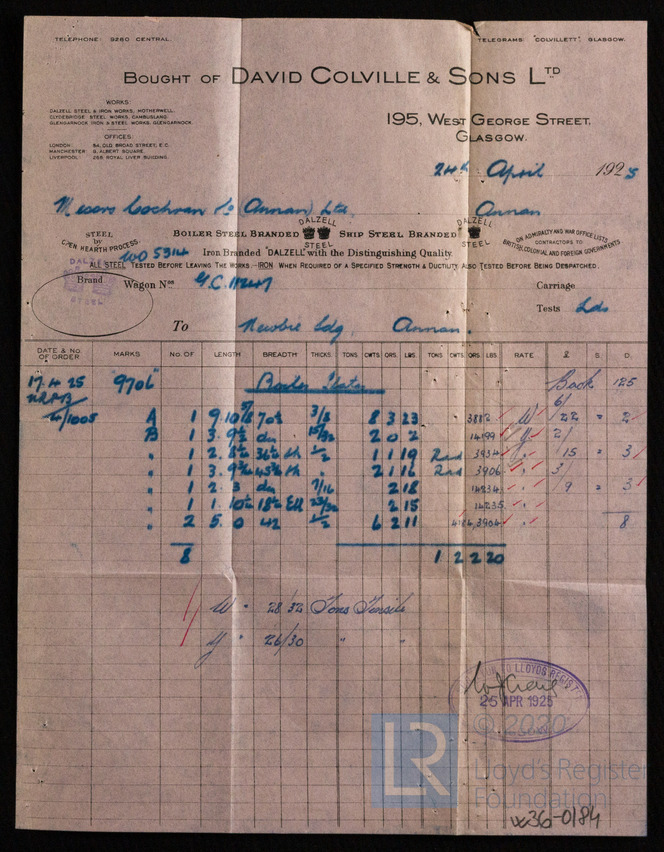 TELEPHONE: 9260 CENTRAL.
TELEGRAMS: "COLVILLETT" GLASGOW.
BOUGHT OF DAVID COLVILLE & SONS LTD
WORKS:
DALZELL STEEL & IRON WORKS, MOTHERWELL.
CLYDEBRIDGE STEEL WORKS, CAMBUSLANG.
GLENGARNOCK IRON & STEEL WORKS, GLENGARNOCK.
OFFICES:
LONDON: 9A, OLD BROAD STREET, E.C.
MANCHESTER: 9, ALBERT SQUARE.
LIVERPOOL: 268, ROYAL LIVER BUILDING.
195, WEST GEORGE STREET,
GLASGOW.
24th April 1925
Messrs Cochran & Co (Annan) Ltd, Annan
STEEL by OPEN HEARTH PROCESS.
BOILER STEEL BRANDED DALZELL STEEL
SHIP STEEL BRANDED DALZELL STEEL
ON ADMIRALTY AND WAR OFFICE LISTS
CONTRACTORS TO
BRITISH, COLONIAL AND FOREIGN GOVERNMENTS
WO 5314
Iron Branded "DALZELL" with the Distinguishing Quality.
ALL STEEL TESTED BEFORE LEAVING THE WORKS.—IRON, WHEN REQUIRED OF A SPECIFIED STRENGTH & DUCTILITY, ALSO TESTED BEFORE BEING DESPATCHED.
DALZELL
STEEL
Brand
Wagon Nos
Carriage
Tests Lds
To Newbie Sdg, Annan.
DATE & NO. OF ORDER MARKS NO. OF LENGTH BREADTH THICKS TONS CWTS QRS LBS TONS CWTS QRS LBS RATE £ S. D.
17.4.25 9706 Boiler Plates Back 125
2/1005 A 1 8 3 23 3882 W
B 1 2 0 2 14199 Y
" 1 1 1 19 3934 " 15 3
" 1 2 1 16 3906 "
" 1 2.3 do 7/16 2 18 14234 " 9 3
" 1 2 15 14235 "
" 2 5.0 42 1/2 6 2 11 3904 " 8
8 1 2 2 20
W - 28/32 Tons Tensile
Y - 26/30 " "
LLOYDS REGISTER
25 APR 1925
LR
© 2020
Lloyd's Register
Foundation
W36-0184